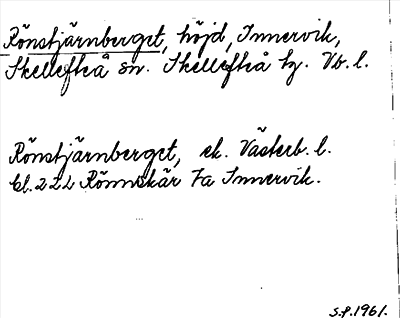 Rönstjärnberget, höjd, Innervik,
Skellefteå sn. Skellefteå tg. Vb. l.
Rönstjärnberget, ek. Västerb. l.
bl. 222 Rönnskär 7a Innervik.
S.P. 1961.